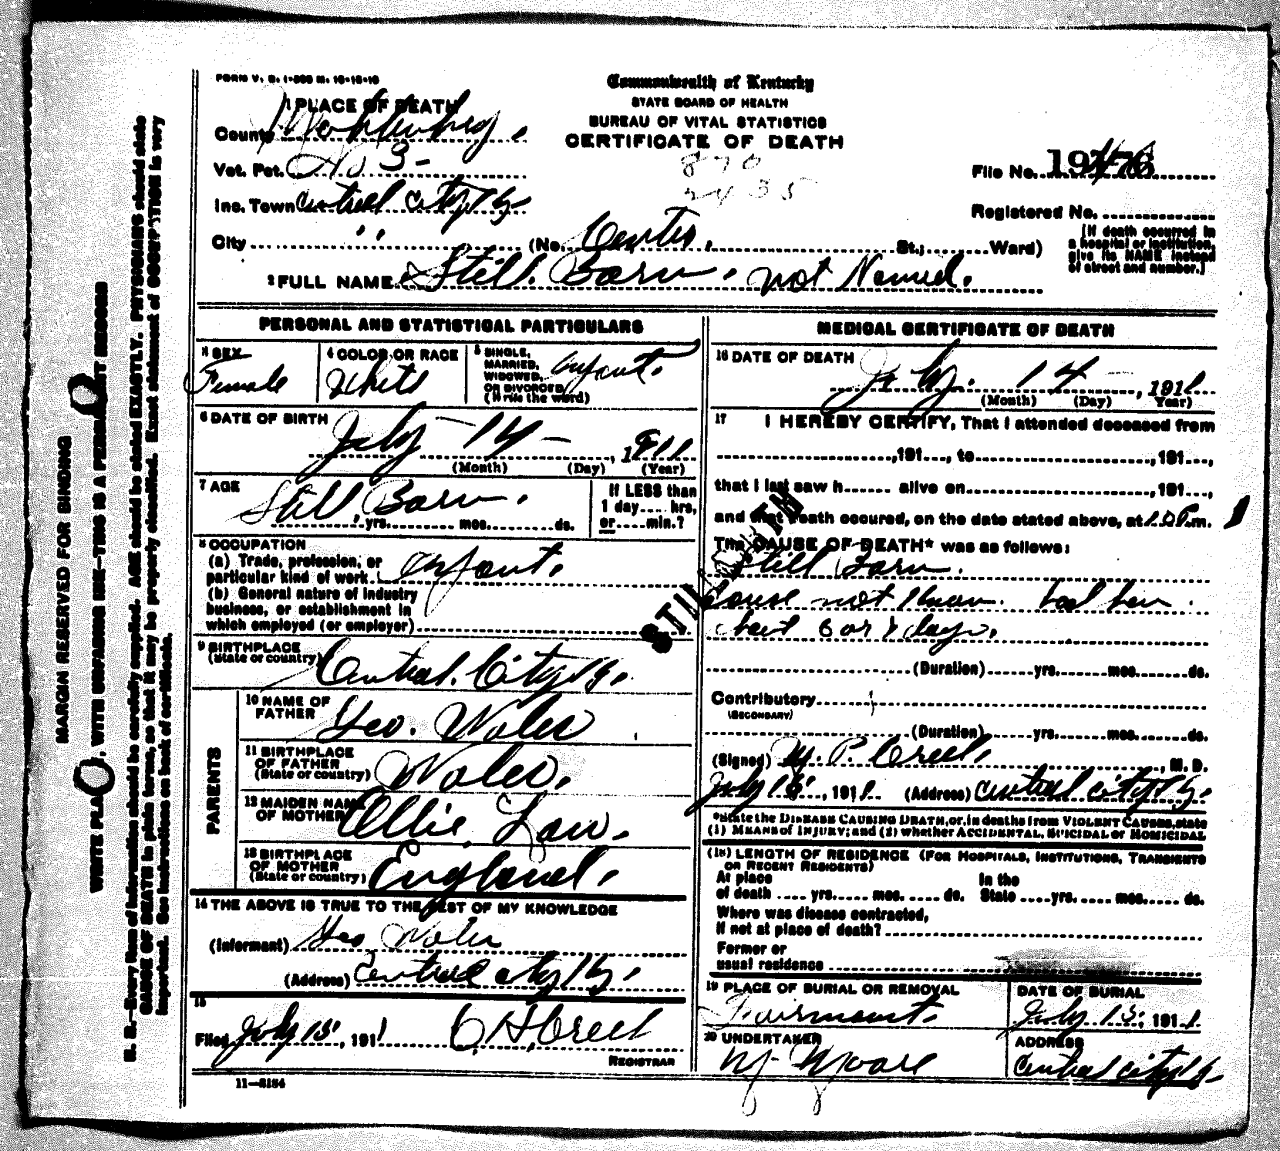 FORM V. S. 1-
Commonwealth of Kentucky
STATE BOARD OF HEALTH
BUREAU OF VITAL STATISTICS
CERTIFICATE OF DEATH
1 PLACE OF DEATH
County
Vot. Pct. No 3-
Inc. Town Central City Ky
City " (No. Center. St.; Ward)
870
2435
File No.
Registered No.
[If death occurred in a hospital or institution, give its NAME instead of street and number.]
2 FULL NAME Still. Born. not Named.
PERSONAL AND STATISTICAL PARTICULARS
3 SEX
Female
4 COLOR OR RACE
White
5 SINGLE, MARRIED, WIDOWED, OR DIVORCED (Write the word)
infant.
6 DATE OF BIRTH
July 14 - , 1911
(Month) (Day) (Year)
7 AGE
Still Born.
yrs. mos. ds.
If LESS than 1 day hrs, or min.?
8 OCCUPATION
(a) Trade, profession, or
particular kind of work infant.
(b) General nature of industry
business, or establishment in
which employed (or employer)
9 BIRTHPLACE
(State or country) Central. City Ky.
PARENTS
10 NAME OF FATHER Geo. Wales
11 BIRTHPLACE OF FATHER (State or country) Wales.
12 MAIDEN NAME OF MOTHER Ollie Law.
13 BIRTHPLACE OF MOTHER (State or country) England.
14 THE ABOVE IS TRUE TO THE BEST OF MY KNOWLEDGE
(Informant) Geo Wales
(Address) Central City Ky.
15
Filed July 15, 1911 C. H. Creel
REGISTRAR
11-3184
MEDICAL CERTIFICATE OF DEATH
16 DATE OF DEATH
July. 14 - , 1911
(Month) (Day) Year)
17 I HEREBY CERTIFY, That I attended deceased from
,191 , to ,191 ,
that I last saw h alive on ,191 ,
and that death occured, on the date stated above, at m.
The CAUSE OF DEATH* was as follows:
STILLBIRTH
Still Born.
Cause not known.
6 or 8 days.
(Duration) yrs. mos. ds.
Contributory
(SECONDARY)
(Duration) yrs. mos. ds.
(Signed) P. Creel, M. D.
July 15, 1911. (Address) Central City Ky.
*State the DISEASE CAUSING DEATH, or, in deaths from VIOLENT CAUSES, state
(1) MEANS of INJURY; and (2) whether ACCIDENTAL, SUICIDAL or HOMICIDAL
(18) LENGTH OF RESIDENCE (FOR HOSPITALS, INSTITUTIONS, TRANSIENTS
OR RECENT RESIDENTS)
At place of death yrs. mos. ds. In the State yrs. mos. ds.
Where was disease contracted,
if not at place of death?
Former or
usual residence
19 PLACE OF BURIAL OR REMOVAL
Fairmount.
DATE OF BURIAL
July 15, 1911.
20 UNDERTAKER
Moore
ADDRESS
Central City Ky
MARGIN RESERVED FOR BINDING
WRITE PLA , WITH UNFADING INK—THIS IS A PERMANENT RECORD
N. B.—Every item of information should be carefully supplied. AGE should be stated EXACTLY. PHYSICIANS should state
CAUSE OF DEATH in plain terms, so that it may be properly classified. Exact statement of OCCUPATION is very
important. See instructions on back of certificate.